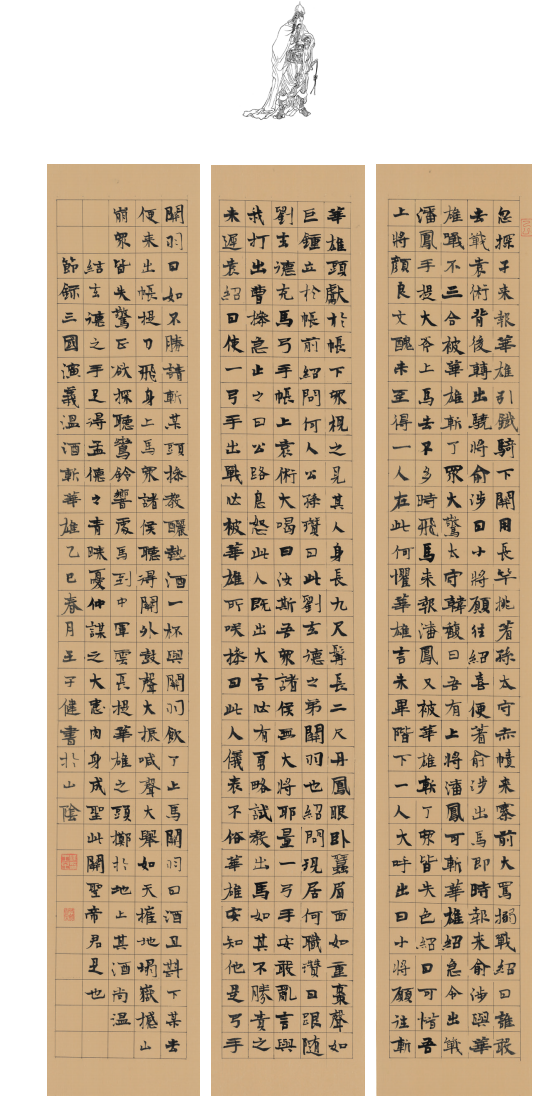 忽探子来報華雄引鐵騎下關用長竿挑着孫太守赤幘来寨前大罵搦戰紹曰誰敢
去戰袁術背後轉出驍將俞涉曰小將願往紹喜便著俞涉出馬即時報来俞涉與華
雄戰不三合被華雄斬了眾大驚太守韓馥曰吾有上將潘鳳可斬華雄紹急令出戰
潘鳳手提大斧上馬去不多時飛馬来報潘鳳又被華雄斬了眾皆失色紹曰可惜吾
上將顏良文醜未至得一人在此何懼華雄言未畢階下一人大呼出曰小將願往斬
華雄頭獻於帳下眾視之見其人身長九尺髯長二尺丹鳳眼卧蠶眉面如重棗聲如
巨鍾立於帳前紹問何人公孫瓚曰此劉玄德之弟關羽也紹問現居何職瓚曰跟隨
劉玄德充馬弓手帳上袁術大喝曰汝斯吾眾諸侯無大將耶量一弓手安敢亂言與
我打出曹操急止之曰公路息怒此人既出大言必有勇略試教出馬如其不勝責之
未遲袁紹曰使一弓手出戰必被華雄所咲操曰此人儀表不俗華雄安知他是弓手
關羽曰如不勝請斬某頭操教釃熱酒一杯與關羽飲了上馬關羽曰酒且斟下某去
便来出帳提刀飛身上馬眾諸侯聽得關外鼓聲大振喊聲大舉如天摧地塌嶽撼山
崩眾皆失驚正欲探聽鸞鈴響處馬到中軍雲長提華雄之頭擲於地上其酒尚溫
結玄德之手足得孟德之青睞憂仲謀之大患肉身成聖此關聖帝君是也
節錄三國演義溫酒斬華雄乙巳春月王子健書於山陰